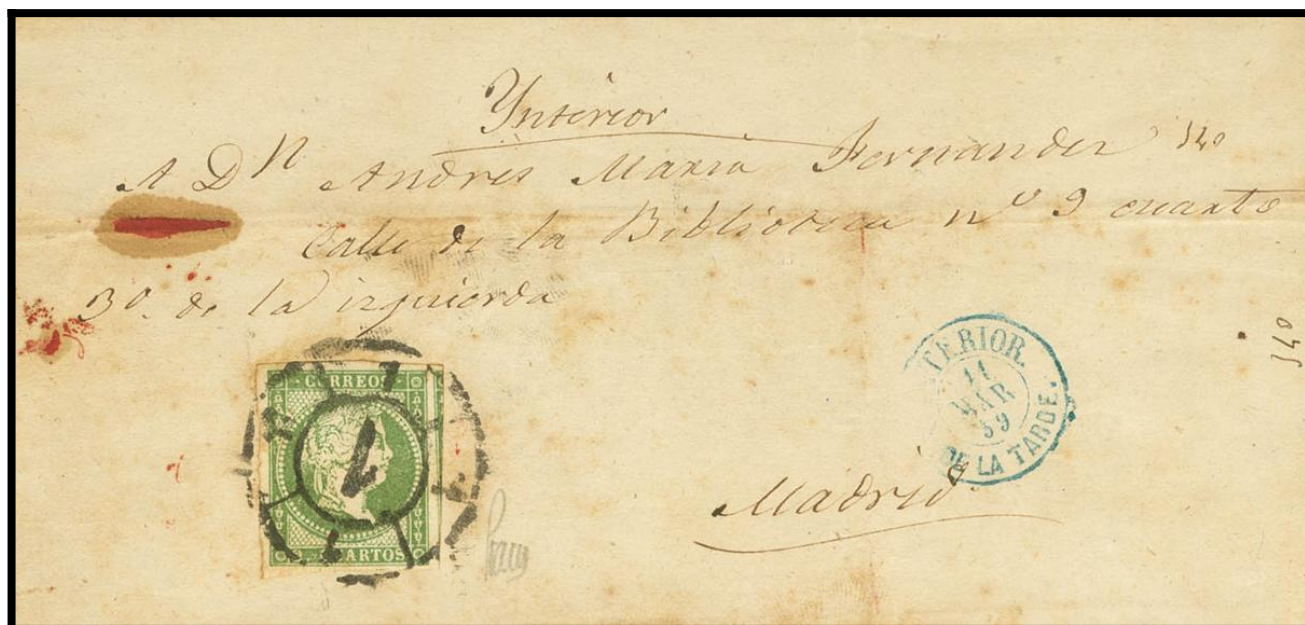 Ynterior
A Dn Andres Maria Fernandez
Calle de la Biblioteca nº 9 cuarto
3º. de la izquierda
CORREOS
ARTOS
1
TERIOR.
11
MAR
59
DE LA TARDE.
Madrid